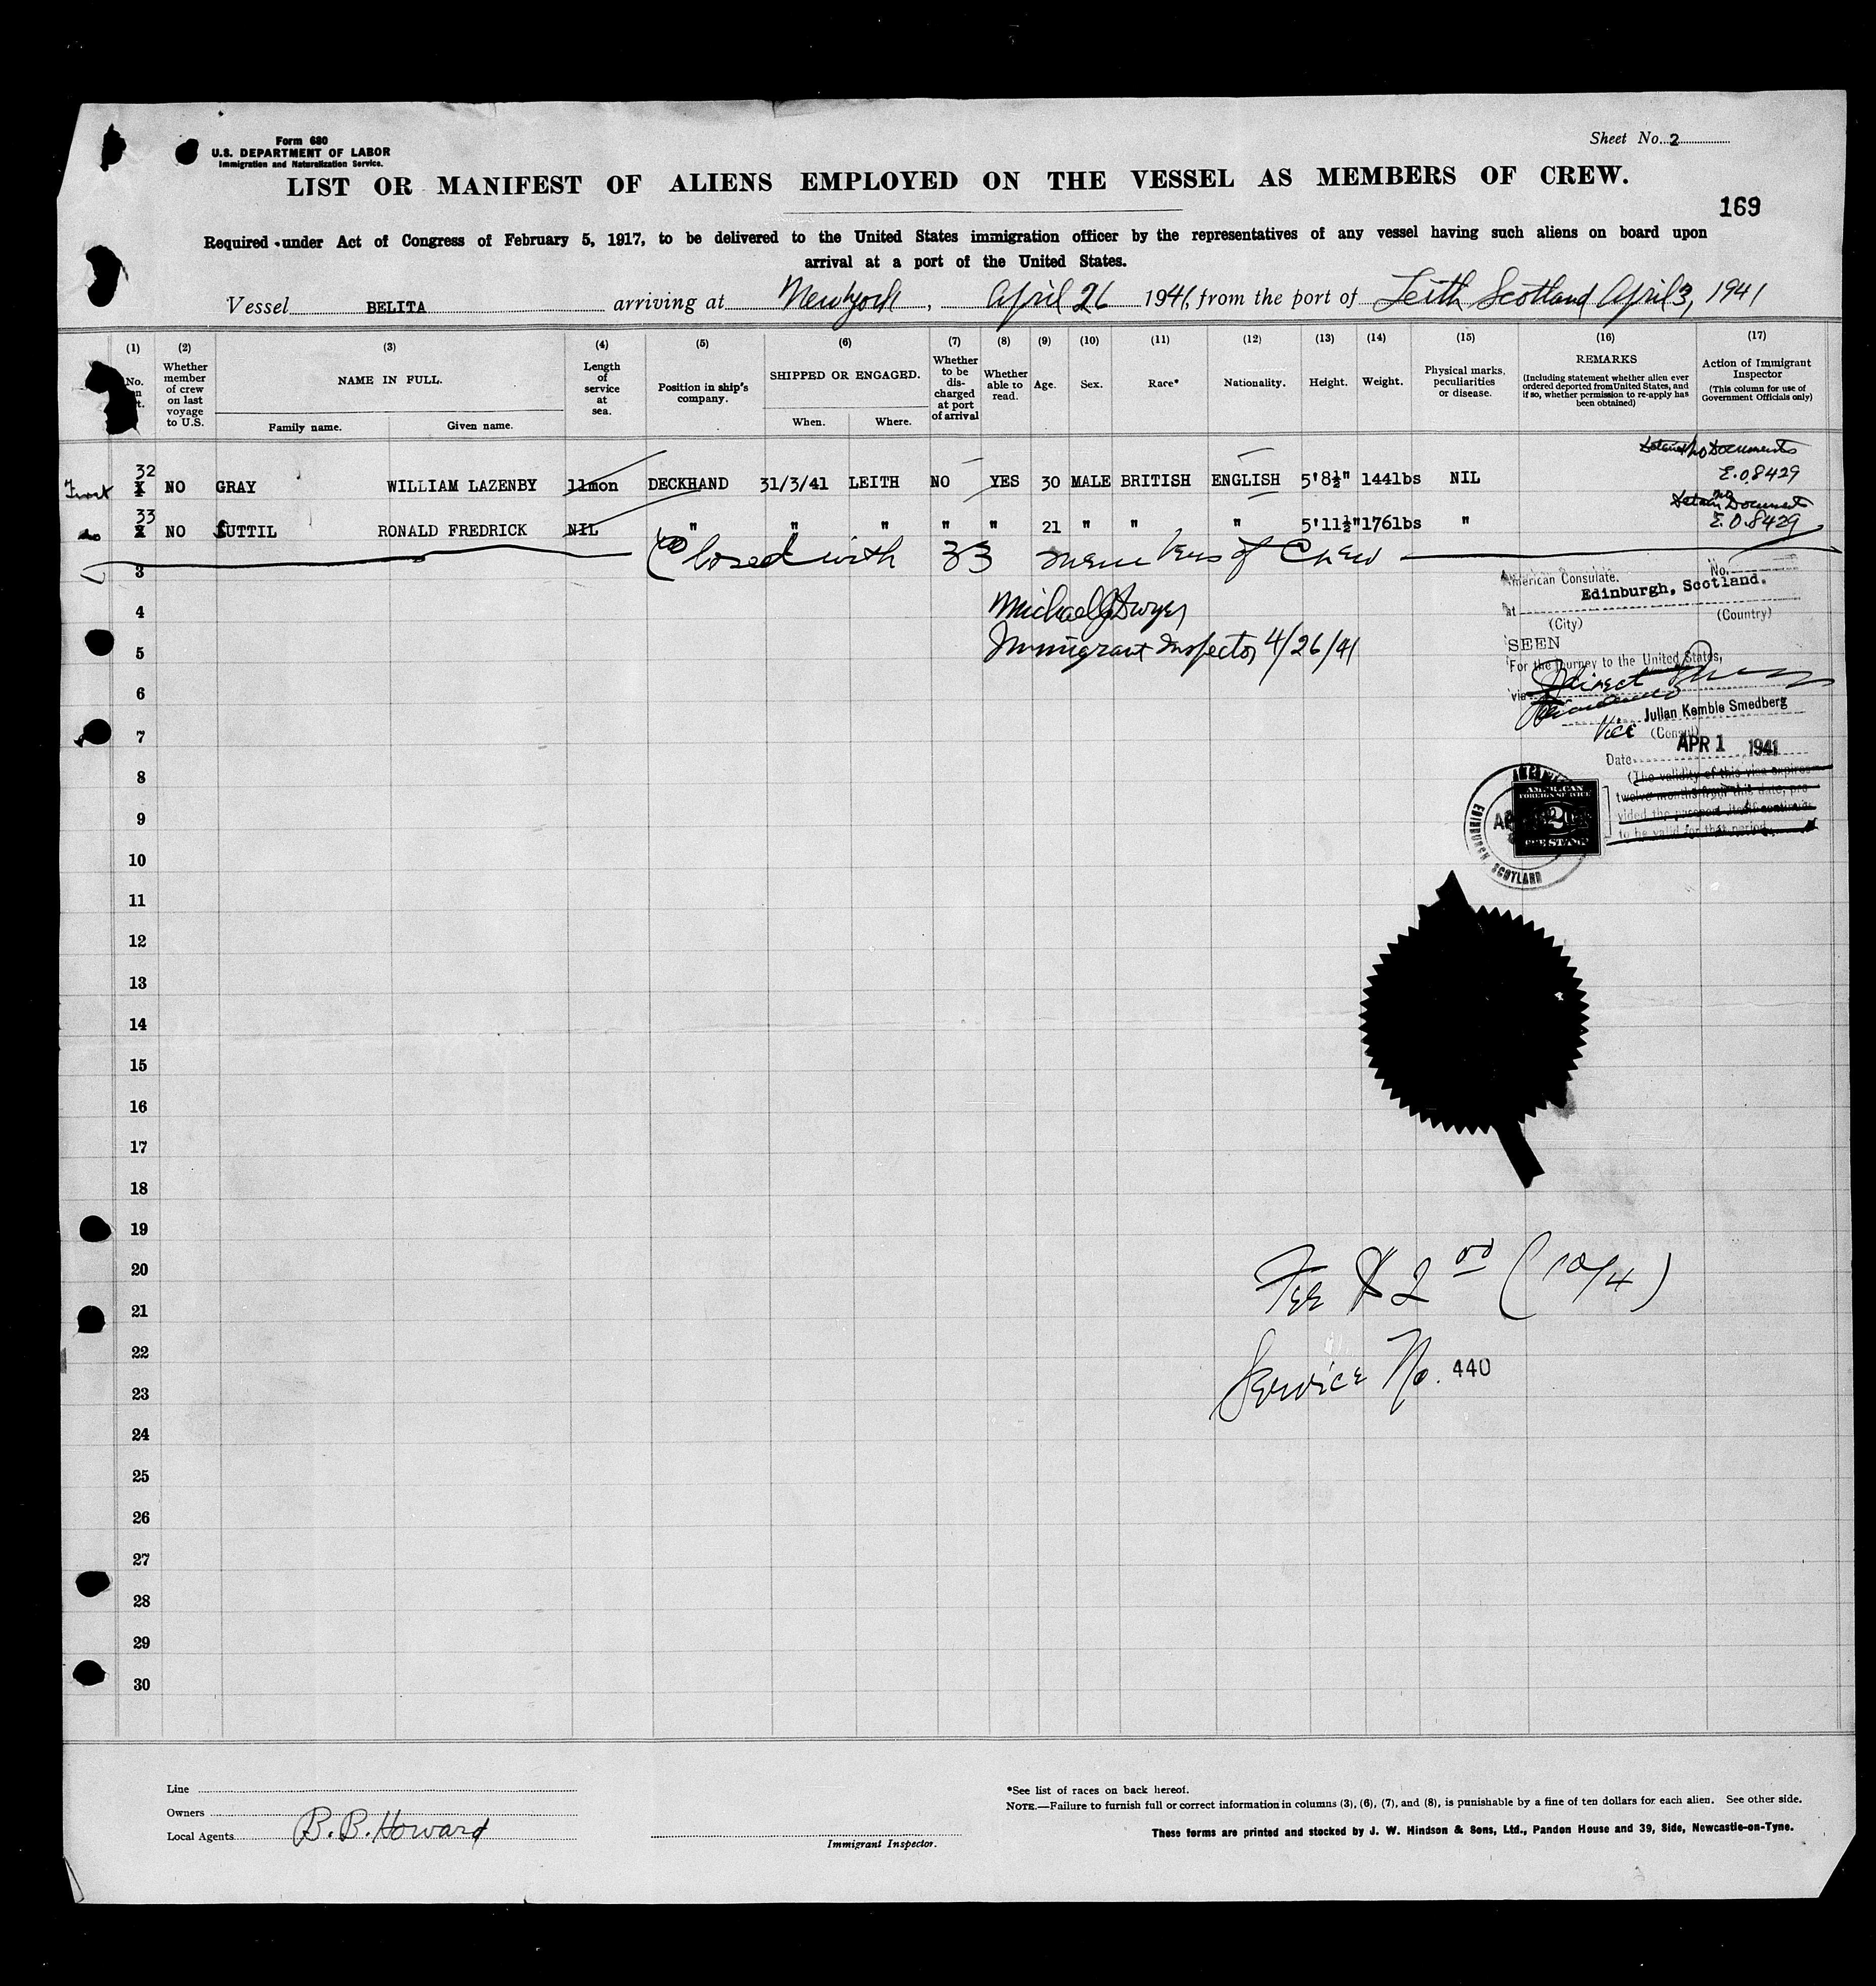 Form 680
U.S. DEPARTMENT OF LABOR
Immigration and Naturalization Service.
Sheet No. 2
LIST OR MANIFEST OF ALIENS EMPLOYED ON THE VESSEL AS MEMBERS OF CREW.
169
Required under Act of Congress of February 5, 1917, to be delivered to the United States immigration officer by the representatives of any vessel having such aliens on board upon
arrival at a port of the United States.
Vessel BELITA arriving at New York, April 26 1941, from the port of Leith Scotland April 3, 1941
(1) (2) (3) (4) (5) (6) (7) (8) (9) (10) (11) (12) (13) (14) (15) (16) (17)
No.
Whether member of crew on last voyage to U.S.
NAME IN FULL.
Family name. Given name.
Length of service at sea.
Position in ship's company.
SHIPPED OR ENGAGED.
When. Where.
Whether to be discharged at port of arrival
Whether able to read.
Age. Sex. Race* Nationality. Height. Weight.
Physical marks, peculiarities or disease.
REMARKS
(Including statement whether alien ever ordered deported from United States, and if so, whether permission to re-apply has been obtained)
Action of Immigrant Inspector
(This column for use of Government Officials only)
No Documents
32 NO GRAY WILLIAM LAZENBY 11mon DECKHAND 31/3/41 LEITH NO YES 30 MALE BRITISH ENGLISH 5'8½" 144lbs NIL E.O.8429
no Document
do 33 NO SUTTIL RONALD FREDRICK NIL " " " " " 21 " " " 5'11½" 176lbs " E.O.8429
Closed with 33 members of Crew
3
American Consulate. No.
Edinburgh, Scotland.
at
(City) (Country)
4 Michael J Dwyer
5 Immigrant Inspector 4/26/41
SEEN
For the journey to the United States,
via Direct
Julian Kemble Smedberg
Vice (Consul)
Date APR 1 1941
(The validity of this visa expires
twelve months from this date, pro-
vided the passport itself continues
to be valid for that period.
AMERICAN
FOREIGN SERVICE
2
EDINBURGH SCOTLAND
6
7
8
9
10
11
12
13
14
15
16
17
18
19
20
21
22
23
24
25
26
27
28
29
30
Fee $2 00 (10/4)
Service No. 440
Line
Owners
Local Agents B.B. Howard
Immigrant Inspector.
*See list of races on back hereof.
NOTE.—Failure to furnish full or correct information in columns (3), (6), (7), and (8), is punishable by a fine of ten dollars for each alien. See other side.
These forms are printed and stocked by J. W. Hindson & Sons, Ltd., Pandon House and 39, Side, Newcastle-on-Tyne.